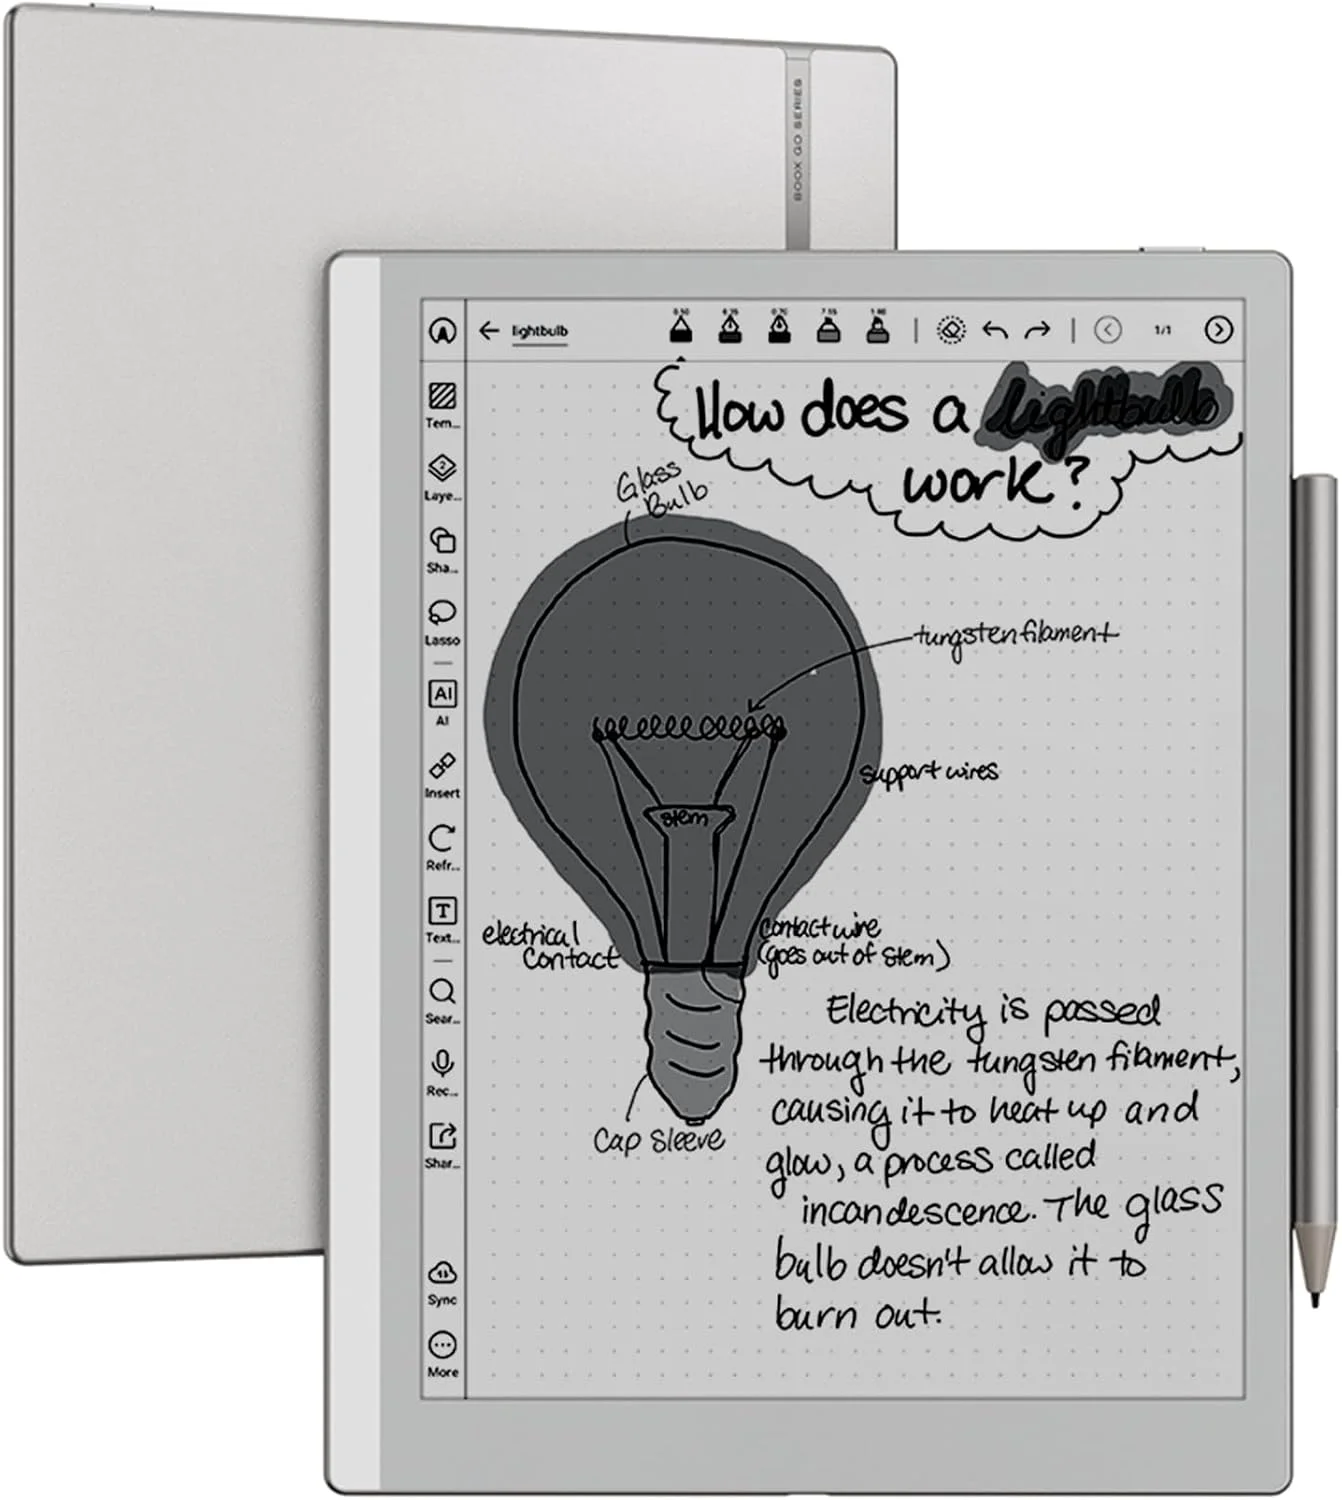 BOOX GO SERIES
lightbulb
0.50
0.70
7.55
1.80
1/1
Tem...
Laye...
2
Sha...
Lasso
AI
AI
Insert
Refr...
T
Text...
Sear...
Rec...
Shar...
Sync
More
How does a lightbulb
work?
Glass
Bulb
tungsten filament
support wires
stem
electrical
contact
contact wire
(goes out of stem)
Cap Sleeve
Electricity is passed
through the tungsten filament,
causing it to heat up and
glow, a process called
incandescence. The glass
bulb doesn't allow it to
burn out.